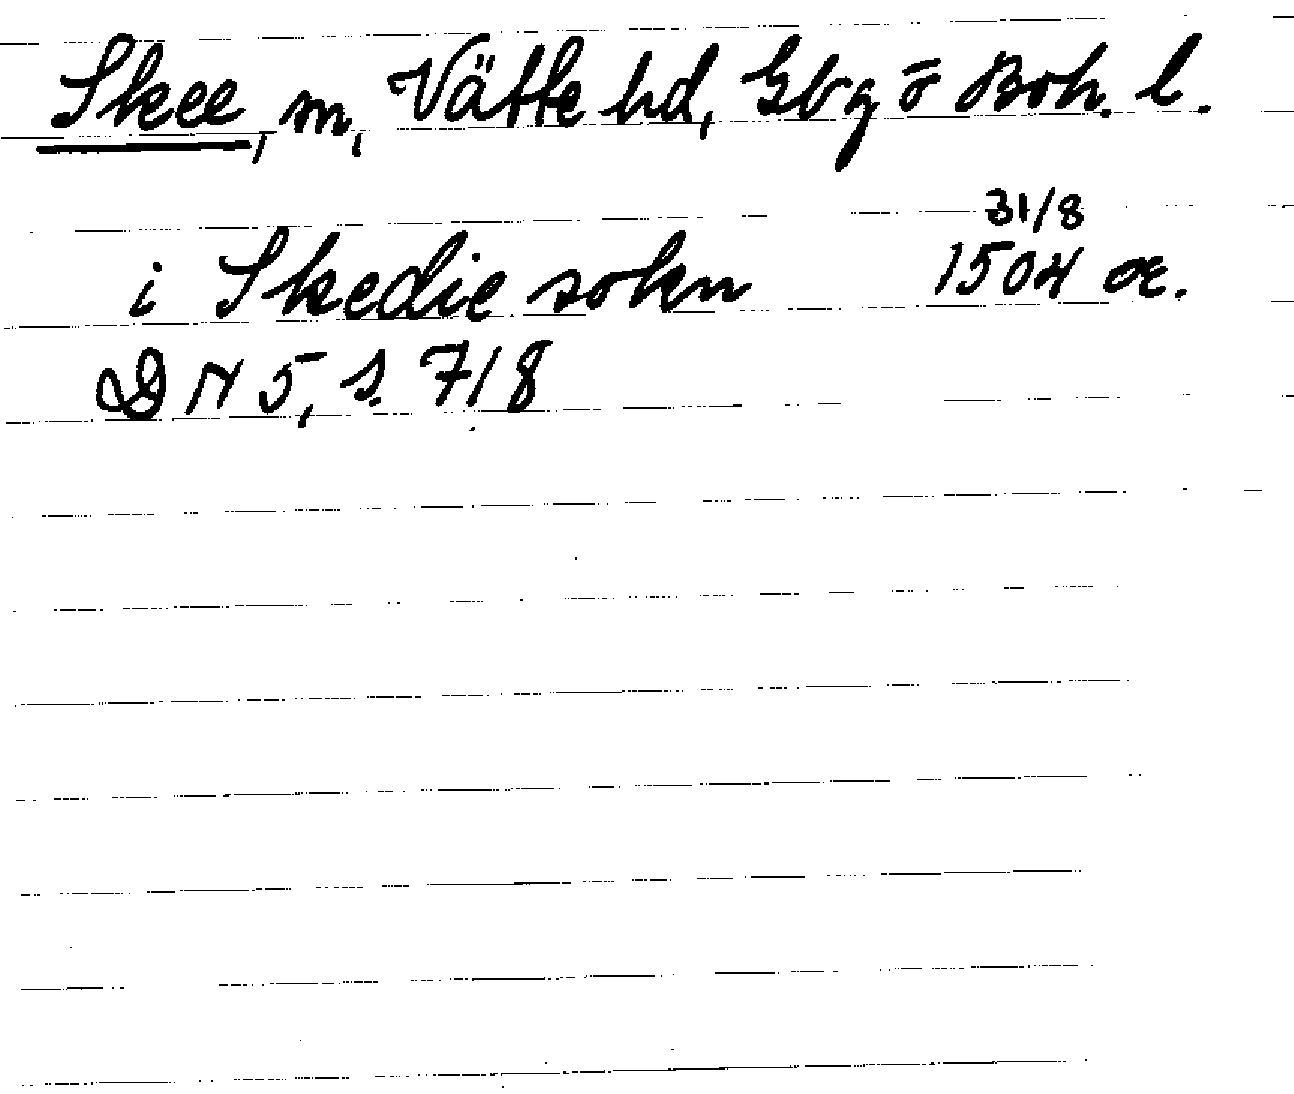 Skee, sn, Vätte hd, Gbg o Boh. l.
31/8
i Skedie sokn 1504 or.
DN 5, s. 718